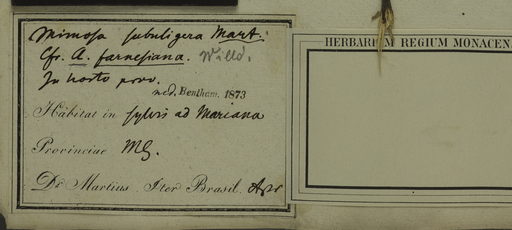 Mimosa subuligera Mart.
Cfr. A. farnesiana. Willd.
In horto
ned. Bentham. 1873
Habitat in sylvis ad Mariana
Provinciae MG.
Dr Martius Iter Brasil. Apr
HERBARIUM REGIUM MONACEN